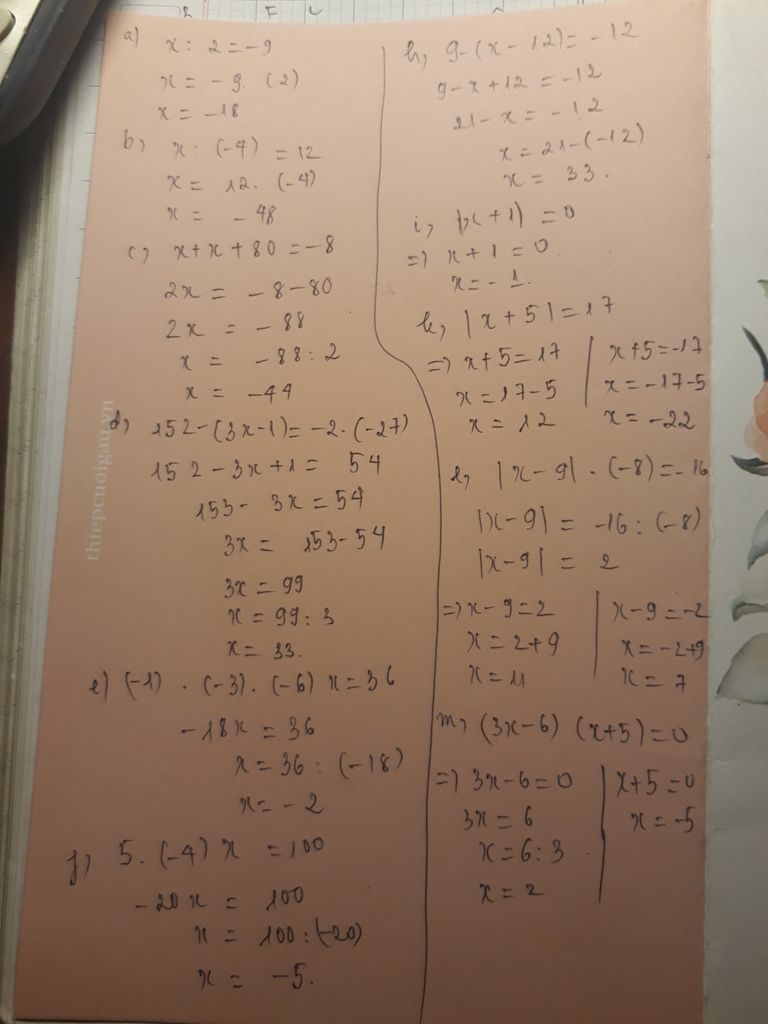 a) x : 2 = -9
x = -9. (2)
x = -18
b, x : (-4) = 12
x = 12. (-4)
x = -48
c, x + x + 80 = -8
2x = -8-80
2x = -88
x = -88 : 2
x = -44
d, 152-(3x-1)= -2.(-27)
152-3x+1 = 54
153- 3x = 54
3x = 153-54
3x = 99
x = 99 : 3
x = 33.
e) (-1) . (-3). (-6) x = 36
-18x = 36
x = 36 : (-18)
x = -2
f, 5. (-4) x = 100
-20x = 100
x = 100 : (-20)
x = -5.
h, 9-(x-12)= -12
9-x+12 = -12
21-x = -12
x = 21-(-12)
x = 33.
i, |x+1| = 0
=> x+1 = 0.
x = -1.
k, |x+5| = 17
=> x+5 = 17 | x+5 = -17
x = 17-5 | x = -17-5
x = 12 | x = -22
l, |x-9| . (-8) = -16
|x-9| = -16 : (-8)
|x-9| = 2
=> x-9 = 2 | x-9 = -2
x = 2+9 | x = -2+9
x = 11 | x = 7
m, (3x-6) (x+5) = 0
=> 3x-6 = 0 | x+5 = 0
3x = 6 | x = -5
x = 6 : 3
x = 2
thiepcuoigau.vn